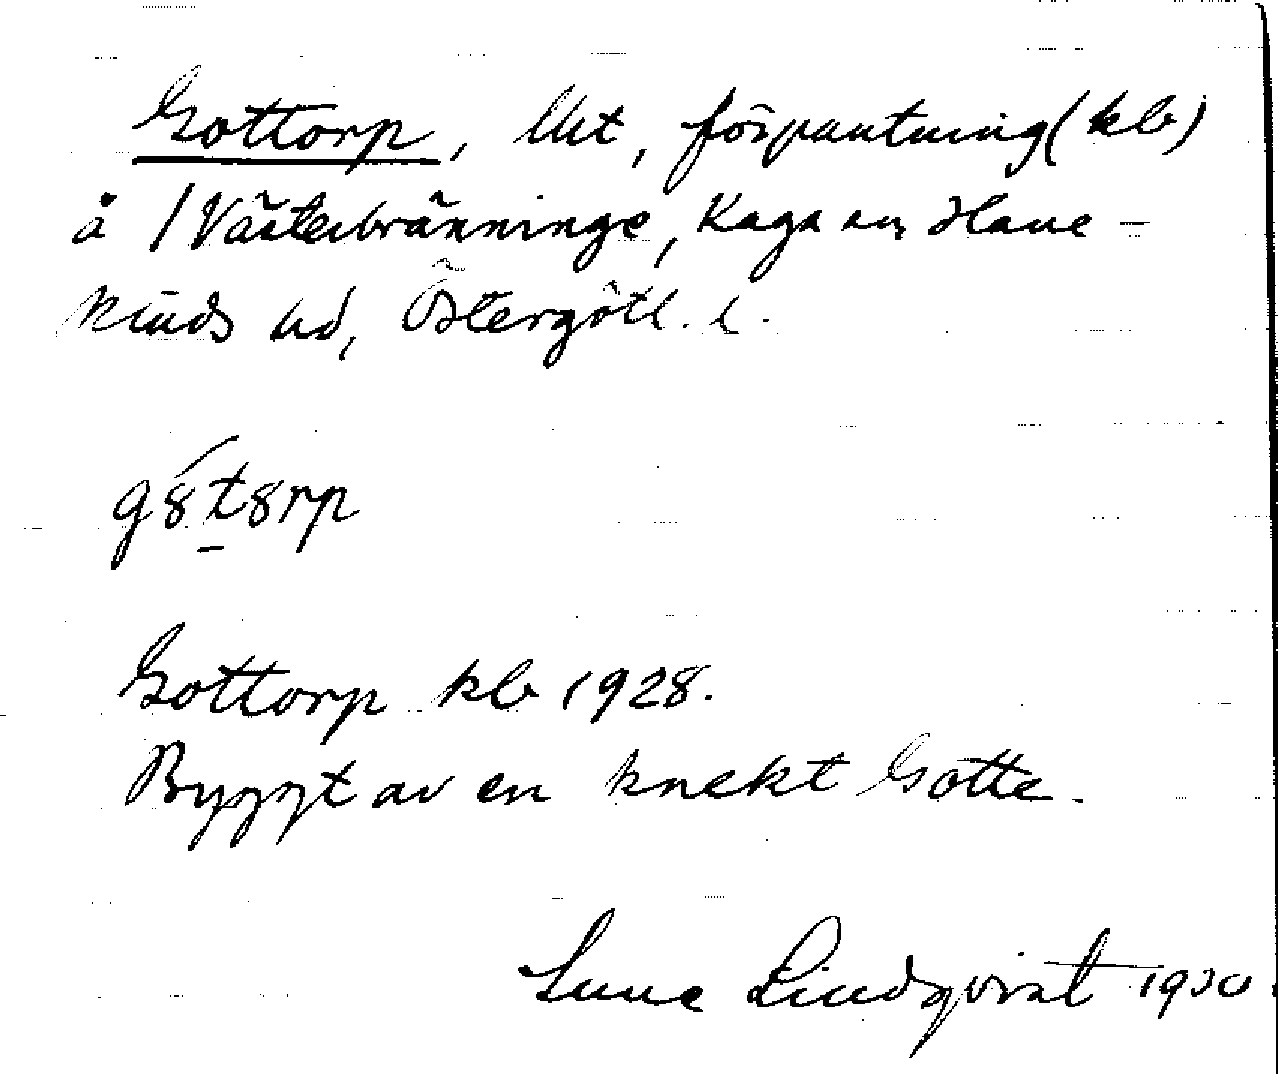 Gottorp, lht, förpantning (kb)
å /Västerbränninge, Kaga sn, Hane-
kinds hd, Östergötl. l.
g8́t8rp
Gottorp kb 1928.
Byggt av en knekt Gotte.
Sune Lindqvist 1930.